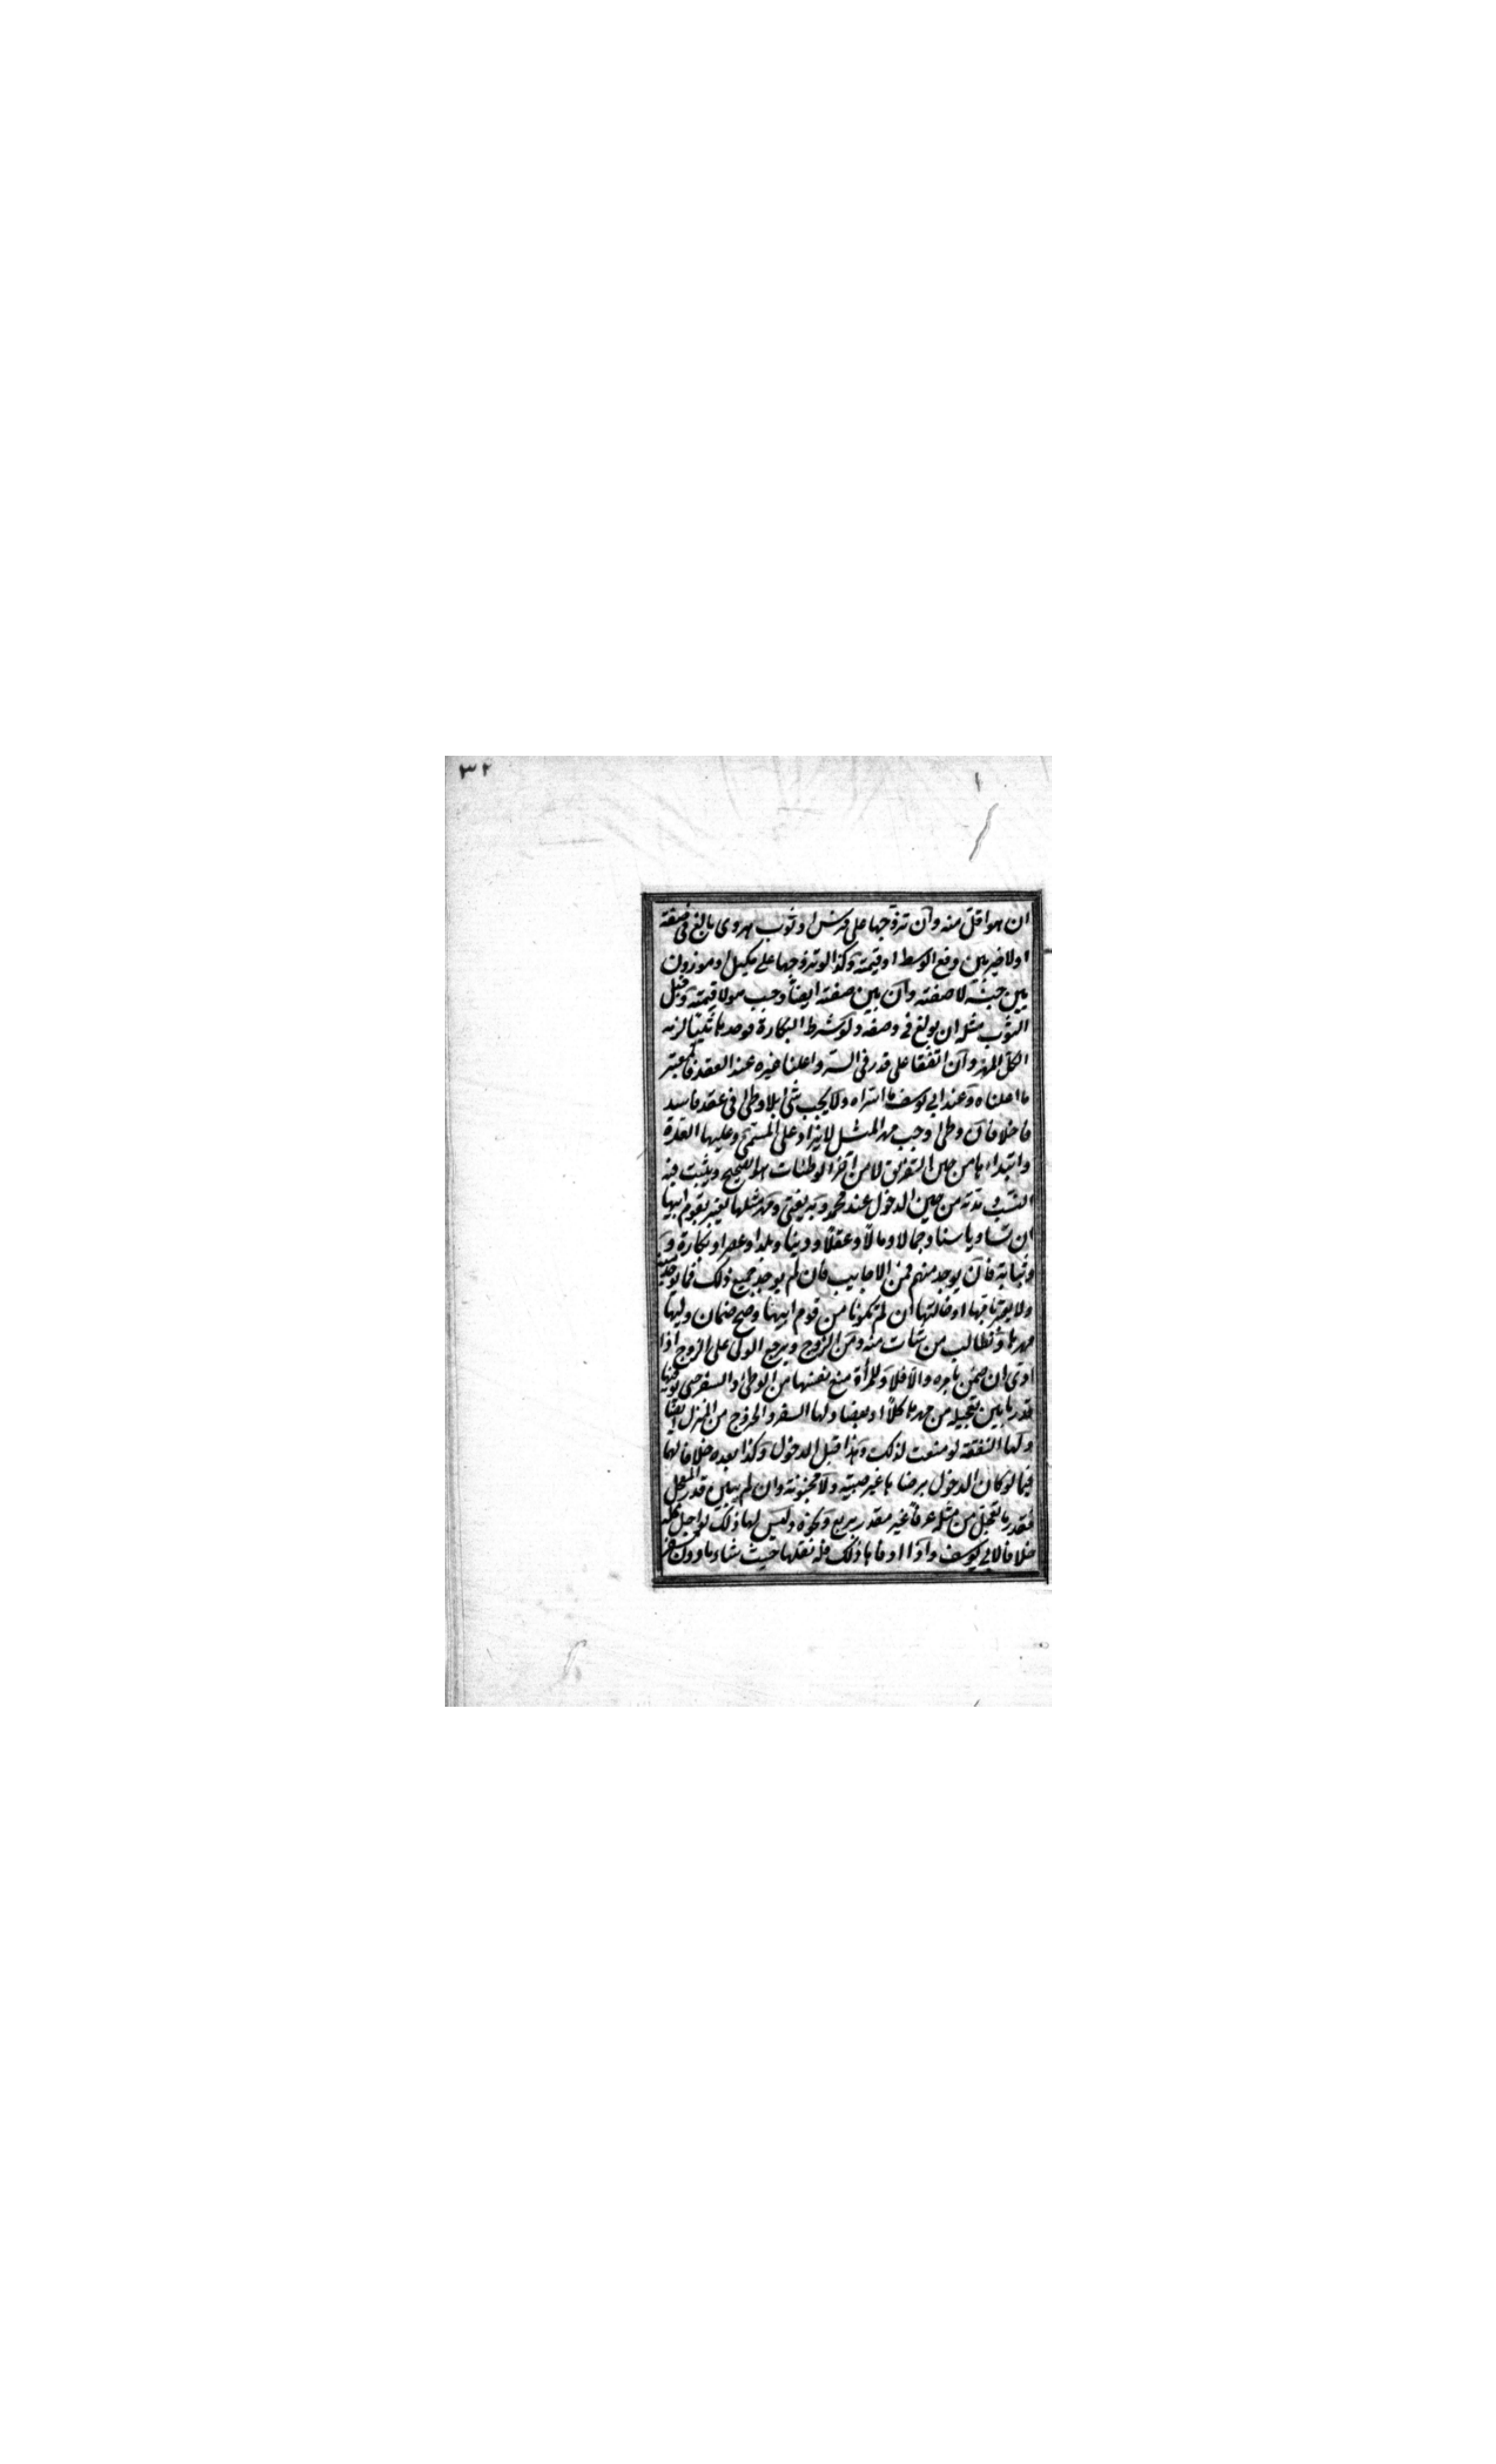 ٣٢
ان هو اقل منه وان تزوجها على فرس او ثوب هروى بالغ فى وصفه
اولا خير بين دفع الوسط او قيمته وكذا لو تزوجها على مكيل او موزون
بين جنسه لا صفته وان بين صفته ايضا وجب هو لا قيمته وقيل
الثوب مثله ان بولغ فى وصفه ولو شرط البكارة فوجدها ثيبا لزمه
الكل المهر وان اتفقا على قدر فى السر واعلنا غيره عند العقد فالمعتبر
ما اعلناه وعند ابى يوسف ما اسراه ولا يجب شئ بلا وطئ فى عقد فاسد
فان وطئ وجب مهر المثل لا يزاد على المسمى وعليها العدة
وابتداءها من حين التفريق لا من آخر الوطئات هو الصحيح ويثبت فيه
النسب ومدته من حين الدخول عند محمد وبه يفتى ومهر مثلها يعتبر بقوم ابيها
ان تساويا سنا وجمالا ومالا وعقلا ودينا وبلدا وعصرا وبكارة و
وثيابة فان يوجد منهم فمن الاجانيب فان لم يوجد جميع ذلك فما يوجد منه
ولا يعتبر بامها او خالتها ان لم تكونا من قوم ابيها وصح ضمان وليها
مهرها وتطالب من شاءت منه ومن الزوج ويرجع الولى على الزوج اذا
ادى ان ضمن بامره والا فلا وللمرأة منع نفسها من الوطئ والسفر حتى يوفيها
قدر ما بين تعجيله من مهرها كلا او بعضا ولها السفر والخروج من المنزل ايضا
ولها النفقة لو منعت لذلك وهذا قبل الدخول وكذا بعده خلافا لهما
فيما لو كان الدخول برضاها غير صبية ولا مجنونة وان لم يبين قدر المعجل
فقدر ما تعجل من مثله عرفا غير مقدر بربع ونحوه وليس لها ذلك لو اجل كله
خلافا لابى يوسف واذا اوفاها ذلك فله نقلها حيث شاء ما دون سفر